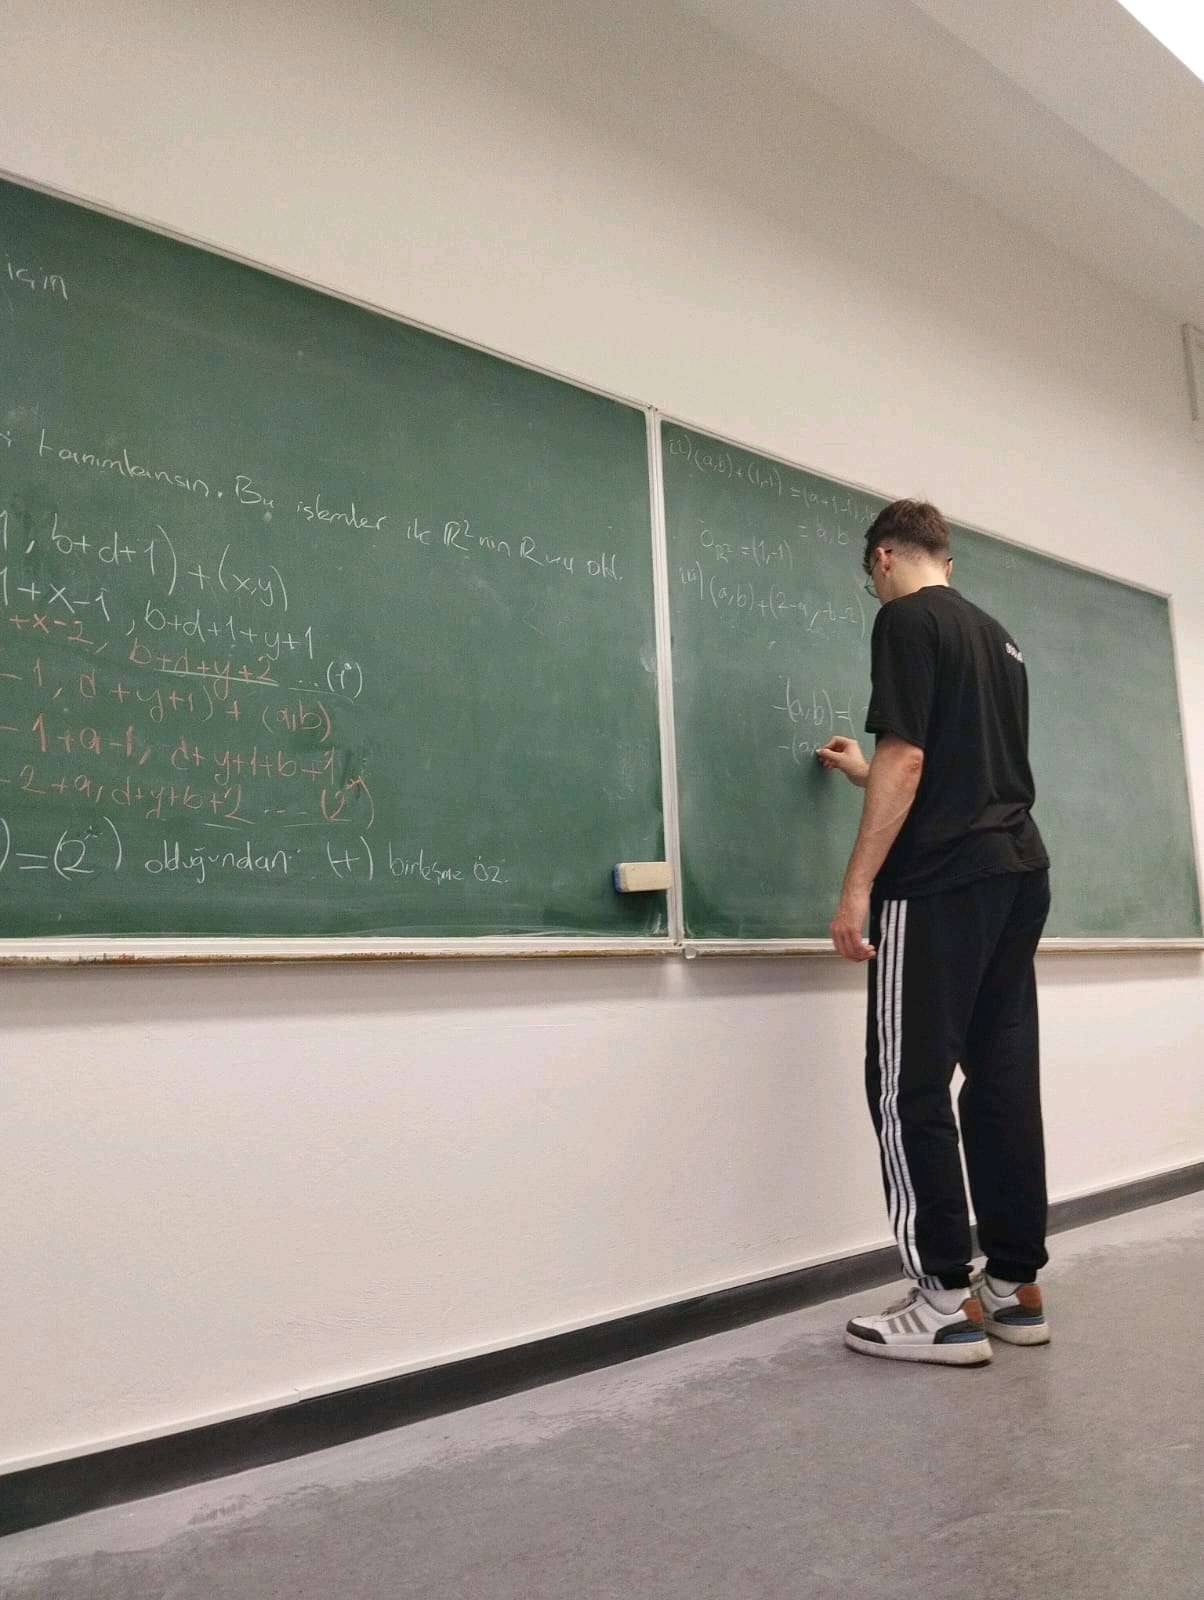 için
tanımlansın. Bu işlemler ile ℝ² nin ℝ old.
1, b+d+1) + (x,y)
1+x-1, b+d+1+y+1
+x-2, b+d+y+2 ... (1*)
-1, d+y+1) + (a,b)
-1+a-1, d+y+1+b+1
-2+a, d+y+b+2 ... (2*)
) = (2*) olduğundan (+) birleşme öz.
ii) (a,b) + (1,-1) = (a+1-1,
= a,b
0ℝ² = (1,-1)
iii) (a,b) + (2-a, -b-2)
-(a,b) = (
-(a,